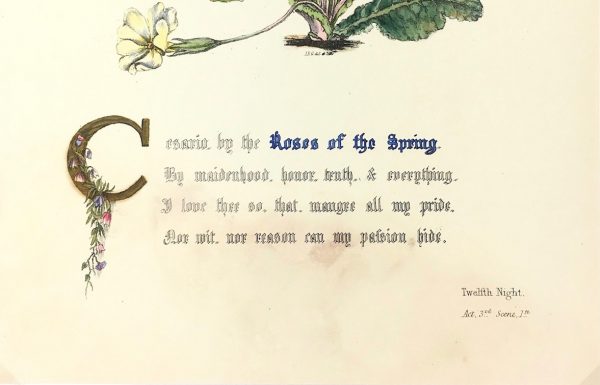 Cesario, by the Roses of the Spring.
By maidenhood, honor, truth, & everything,
I love thee so, that, maugre all my pride,
Nor wit, nor reason can my paſsion hide.
Twelfth Night.
Act, 3rd Scene, 1st